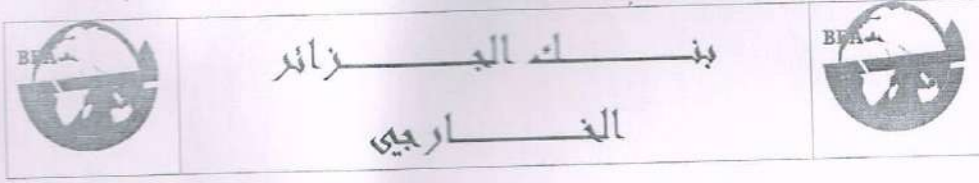 BEA
بنك الجزائر
الخارجي
BEA